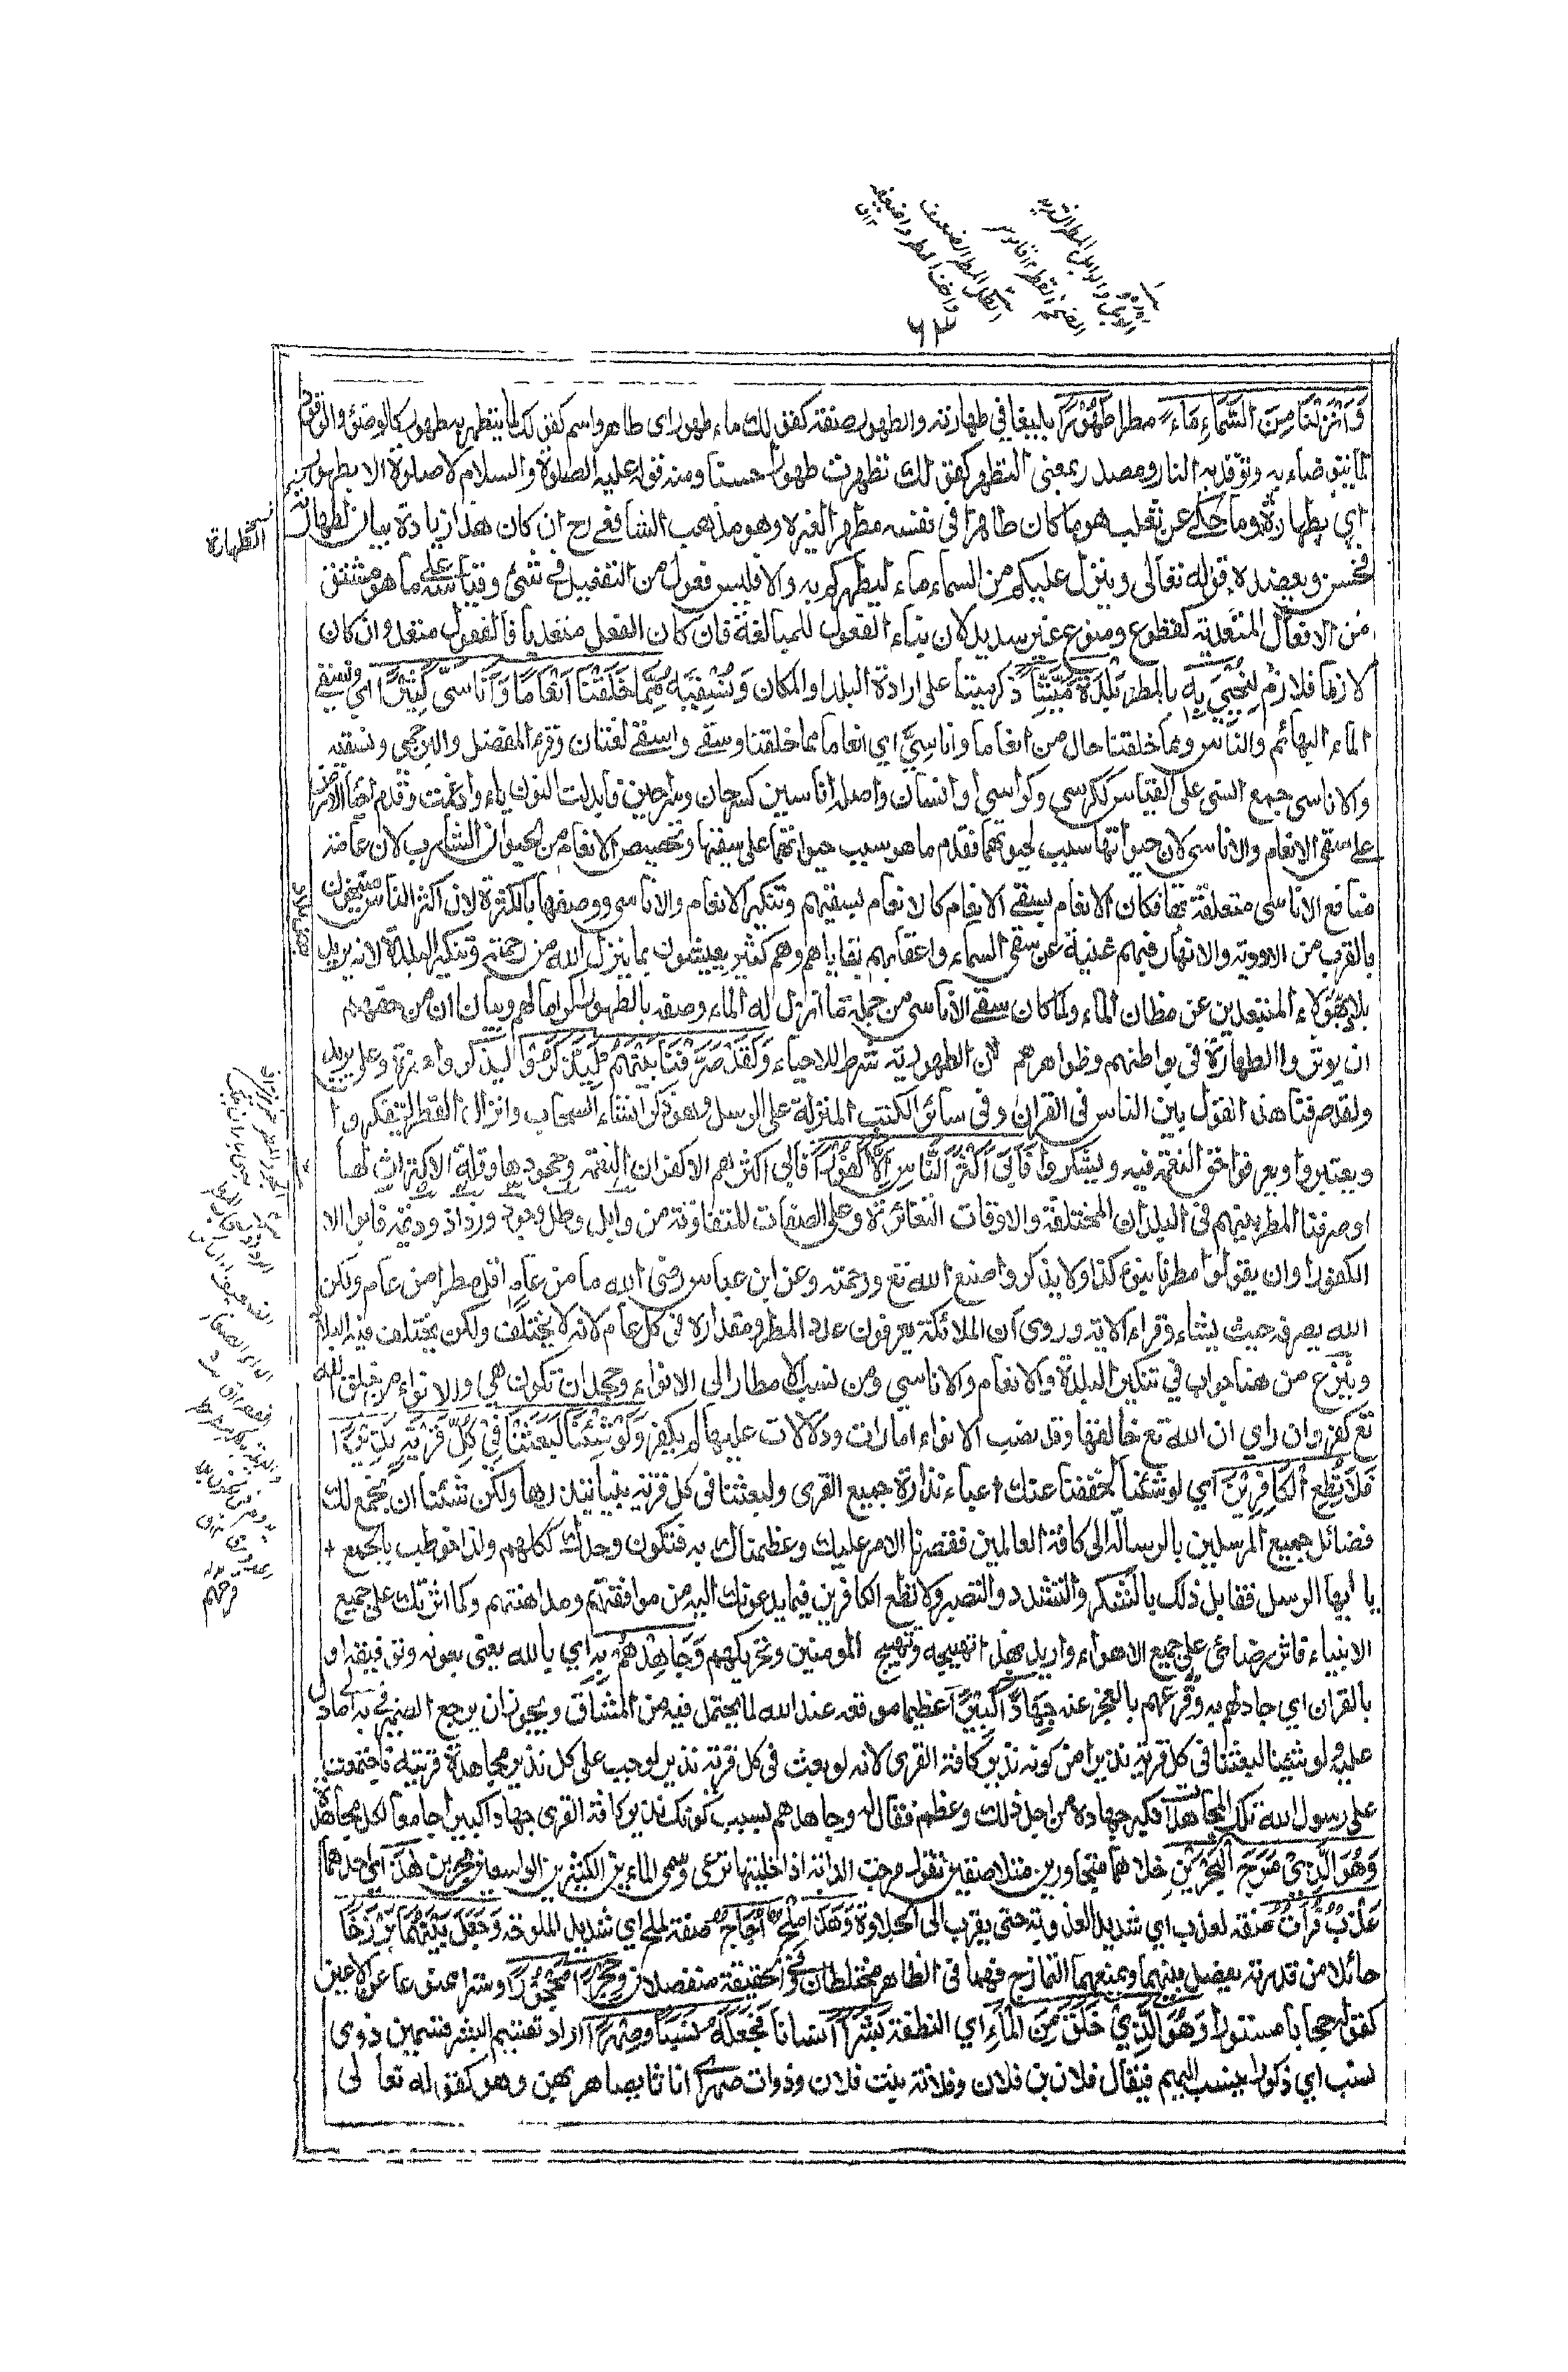 ٦٣
وَأَنْزَلْنَا مِنَ السَّمَاءِ مَاءً مطرا طَهُوْرًا بليغا في طهارته والطهور صفة كقولك ماء طهور اى طاهر واسم كقولك لما يتطهر به طهور كالوضوء والوقود
لما يتوضاء به وتوقد به النار ومصدر بمعنى التطهر كقولك تطهرت طهورا حسنا ومنه قوله عليه الصلوة والسلام لا صلوة الا بطهور
اي بطهارة وما حكے عن ثعلب هو ما كان طاهرا في نفسه مطهرا لغيره وهو مذهب الشافعے رح ان كان هذا زيادة بيان لطهارته
فحسن ويعضده قوله تعالى وينزل عليكم من السماء ماء ليطهركم به والا فليس فعول من التفعيل في شئ وقياسه على ما هو مشتق
من الافعال المتعدية كقطوع ومنوع غير سديد لان بناء الفعول للمبالغة فان كان الفعل متعديا فالفعول متعد وان كان
لازما فلازم لِنُحْيِيَ بِهٖ بالمطر بَلْدَةً مَّيْتًا ذكر ميتا على ارادة البلد او المكان وَنُسْقِيَهٗ مِمَّا خَلَقْنَا أَنْعَامًا وَأَنَاسِيَّ كَثِيْرًا اي ونسقے
الماء البهائم والناس ومما خلقنا حال من انعاما واناسيّ اي انعاما مما خلقنا وسقے واسقے لغتان وقرء المفضل والبرجمي ونسقيه
والاناسى جمع انسى على القياس ككرسي وكراسي او انسان واصله اناسين كسرحان وسراحين فابدلت النون ياء وادغمت وقدم احياء الارض
على سقى الانعام والاناسى لان حيوتها سبب لحيوتهما فقدم ما هو سبب حيوتهما على سقيها وتخصيص الانعام من الحيوان الشارب لان عامة
منافع الاناسى متعلقة بها فكان الانعام بسقے الانعام كالانعام بسقيهم وتنكير الانعام والاناسى ووصفها بالكثرة لان اكثر الناس منيخون
بالقرب من الاودية والانهار فيهم غنية عن سقى السماء واعقابهم بقاياهم وهم كثير يعيشون بما ينزل الله من رحمته وتنكير البلدة لانه يريد
بلاد هؤلاء المتبعدين عن مظان الماء ولما كان سقے الاناسى من جملة ما انزل له الماء وصفه بالطهور اكراما لهم وبيان ان من حقهم
ان يوثروا الطهارة في بواطنهم وظواهرهم لان الطهورية شرط للاحياء وَلَقَدْ صَرَّفْنَا بَيْنَهُمْ لِيَذَّكَّرُوْا ليذكروا حمزة وعلي يريد
ولقد صرفنا هذا القول بين الناس في القران وفى سائر الكتب المنزلة على الرسل وهو ذكر انشاء السحاب وانزال القطر ليتفكروا
ويعتبروا ويعرفوا حق النعمة فيه ويشكروا فَأَبَى أَكْثَرُ النَّاسِ إِلَّا كُفُوْرًا فابى اكثرهم الا كفران النعمة وجحودها وقلة الاكتراث لها
او صرفنا المطر بينهم في البلدان المختلفة والاوقات المتغائرة وعلى الصفات المتفاوتة من وابل وطل وجود ورذاذ وديمة فابوا الا
الكفور وان يقولوا مطرنا بنوء كذا ولا يذكروا صنع الله تع ورحمته وعن ابن عباس رضى الله ما من عام اقل مطرا من عام ولكن
الله يصرفه حيث يشاء وقراء الاية وروى ان الملائكة يعرفون عدد المطر ومقداره في كل عام لانه لا يختلف ولكن يختلف فيه البلاد
وينزع من هنا جواب في تنكير البلدة والانعام والاناسي ومن نسب الامطار الى الانواء وجحد ان تكون هي والانواء من خلق الله
تع كفر وان راي ان الله تع خالقها وقد نصب الانواء امارات ودلالات عليها لم يكفر وَلَوْ شِئْنَا لَبَعَثْنَا فِيْ كُلِّ قَرْيَةٍ نَذِيْرًا
فَلَا تُطِعِ الْكَافِرِيْنَ اي لو شئنا لخففنا عنك اعباء نذارة جميع القرى ولبعثنا في كل قرية نبيا ينذرها ولكن شئنا ان نجمع لك
فضائل جميع المرسلين بالرسالة الى كافة العالمين فقصرنا الامر عليك وعظمناك به فتكون وحدك ككلهم ولذا خوطب بالجمع
يا أيها الرسل فقابل ذلك بالتشكر والتشدد والتصبر ولا تطع الكافرين فيما يدعونك اليه من موافقتهم ومداهنتهم وكما اثرتك على جميع
الانبياء فاثر رضائى على جميع الاهواء واريد بهذا تهييجه وتهييج المومنين وتحريكهم وَجَاهِدْهُمْ بِهٖ اي بالله يعنى بعونه وتوفيقه او
بالقران اي جادلهم به وقرعهم بالعجز عنه جِهَادًا كَبِيْرًا عظيما موقعه عند الله لما يحتمل فيه من المشاق ويجوز ان يرجع الضمير في به الى ما دل
عليه ولو شئنا لبعثنا في كل قرية نذيرا من كونه نذير كافة القرى لانه لو بعث في كل قرية نذير لوجب على كل نذير مجاهدة قريته فاجتمعت
على رسول الله تلك المجاهدات فكبر جهاده من اجل ذلك وعظم فقال له وجاهدهم بسبب كونك نذير كافة القرى جهادا كبيرا جامعا لكل مجاهدة
وَهُوَ الَّذِيْ مَرَجَ الْبَحْرَيْنِ خلاهما متجاورين متلاصقين تقول مرجت الدابة اذا خليتها ترعى وسمى الماءين الكثيرين الواسعين بحرين هٰذَا اي احدهما
عَذْبٌ فُرَاتٌ صفة لعذب اي شديد العذوبة حتى يقرب الى الحلاوة وَهٰذَا مِلْحٌ أُجَاجٌ صفة لملح اي شديد الملوحة وَجَعَلَ بَيْنَهُمَا بَرْزَخًا
حائلا من قدرته يفصل بينهما ويمنعهما التمازج فهما في الظاهر مختلطان وفي الحقيقة منفصلان وَحِجْرًا مَّحْجُوْرًا وسترا ممنوعا عن الاعين
كقوله حجابا مستورا وَهُوَ الَّذِيْ خَلَقَ مِنَ الْمَاءِ اي النطفة بَشَرًا انسانا فَجَعَلَهٗ نَسَبًا وَصِهْرًا اراد تقسيم البشر قسمين ذوى
نسب اي ذكورا ينسب اليهم فيقال فلان بن فلان وفلانة بنت فلان وذوات صهر اي اناثا يصاهر بهن وهو كقوله تعالى